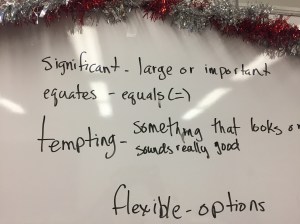 significant - large or important
equates - equals (=)
tempting - something that looks or
sounds really good
flexible - options